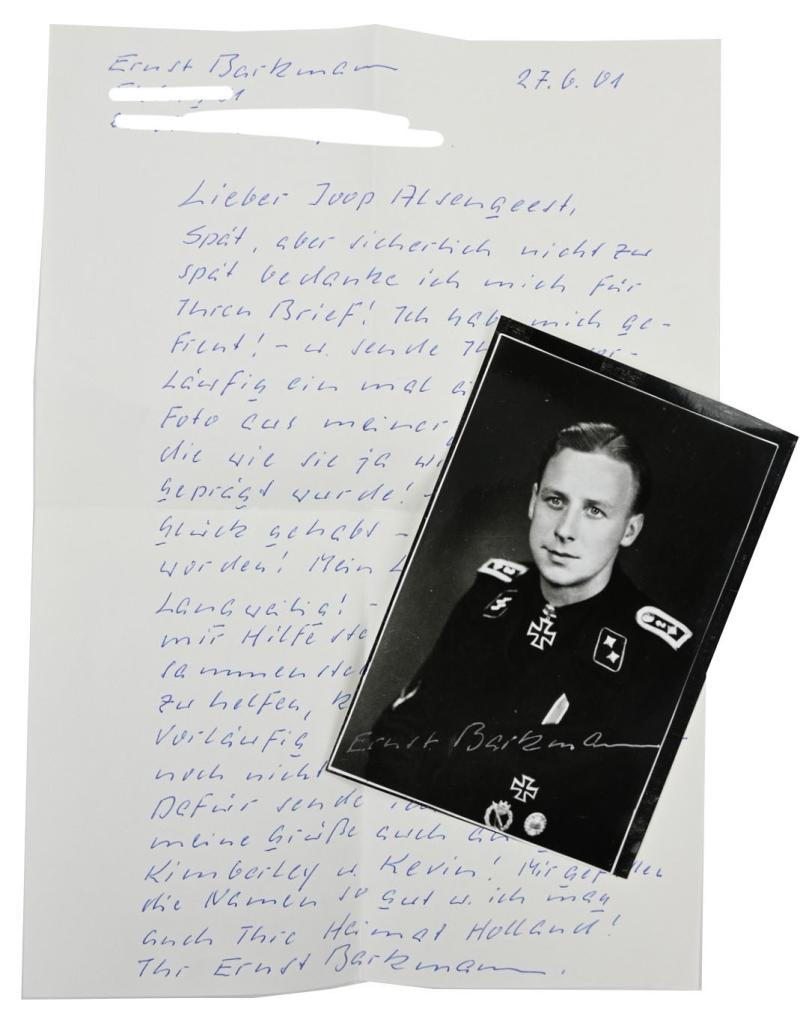 Ernst Barkmann
27.6.01
Lieber Joop Alsengeest,
Spät, aber sicherlich nicht zu
spät bedanke ich mich für
Ihren Brief! Ich habe mich ge-
freut! - u. sende
läufig ein mal
Foto aus meiner
die wie sie ja
geprägt wurde! -
Glück gehabt -
worden! Mein
Langweilig! -
mir Hilfe
sammen
zu helfen,
Vorläufig
noch nicht
Dafür sende
meine Grüße auch an
Kimberley u. Kevin! Mir
die Namen so gut u. ich mag
auch Ihre Heimat Holland!
Ihr Ernst Barkmann.
Ernst Barkmann